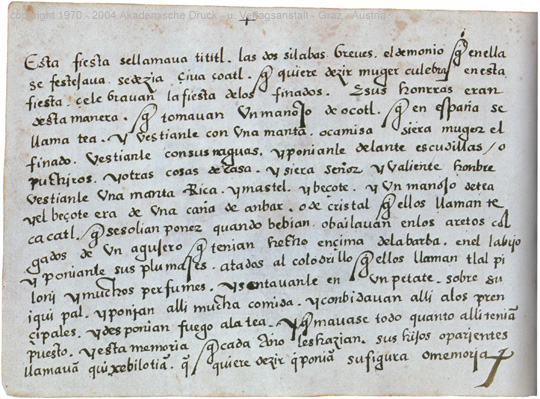 copyright 1970 - 2004 Akademische Druck - u. Verlagsanstalt - Graz, Austria
Esta fiesta sellamava tititl. las dos silabas breves. el demonio q̃ enella
se festejava. sedezia. çiua coatl. q̃ quiere dezir muger culebra. enesta
fiesta. çelebravan la fiesta delos finados. Esus honrras eran
desta manera. q̃ tomavan vn manojo de ocotl. q̃ en españa se
llama tea. y vestianle con vna manta. ocamisa si era muger el
finado. vestianle consus naguas. y ponianle delante escudillas / o
pucheros. y otras cosas de casa. y siera señor y valiente honbre
vestianle vna manta Rica. y mastel. y beçote. y vn manojo detea
y el beçote era de vna caña de anbar. o de cristal q̃ ellos llaman te
ca catl. q̃ sesolian poner quando bebian. obailavan enlos aretos col
gados de vn agujero q̃ tenian hecho encima delabarba. enel labijo
y poniante sus plumajes. atadas al colodrillo q̃ ellos llaman tlal pi
lonj y muchos perfumes. y sentavanle en vn petate. sobre su
iqui pal. y ponjan alli mucha comida. y conbidavan alli alos prin
çipales. y desponian fuego ala tea. y q̃mavase todo quanto alli teniã
puesto. y esta memoria q̃ cada Año leshazian. sus hijos oparientes
llamavã quixebilotia. q̃ quiere dezir q̃ poniã su figura omemoria